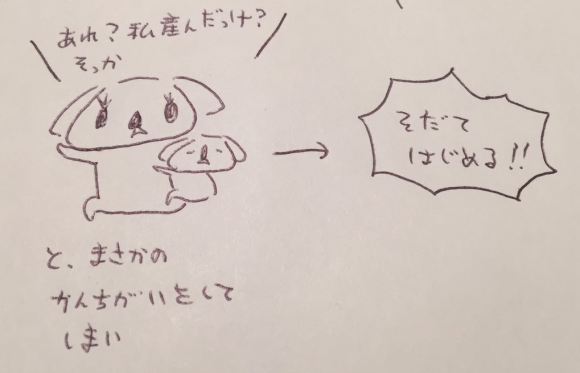 あれ？私産んだっけ？
そっか
そだて
はじめる!!
と、まさかの
かんちがいをして
しまい